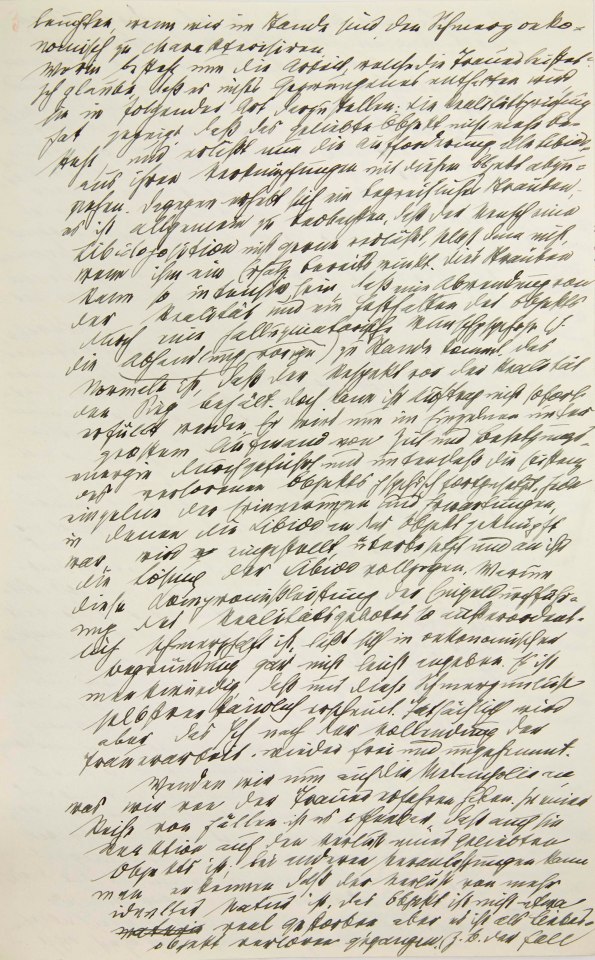 leuchten, wenn wir im Stande sind, den Schmerz oeko-
nomisch zu charakterisiren.
Worin besteht nun die Arbeit, welche die Trauer leistet?
Ich glaube, daß es nichts Gezwungenes enthalten wird
sie in folgender Art darzustellen: Die Realitätsprüfung
hat gezeigt daß das geliebte Objekt nicht mehr be-
steht und erläßt nun die Aufforderung alle Libido
aus ihren Verknüpfungen mit diesem Objekt abzu-
ziehen. Dagegen erhebt sich ein begreifliches Sträuben,
es ist allgemein zu beobachten, daß der Mensch eine
Libidoposition nicht gerne verläßt, selbst dann nicht,
wenn ihm ein Ersatz bereits winkt. Dies Sträuben
kann so intensiv sein, daß eine Abwendung von
der Realität und ein Festhalten des Objekts
durch eine halluzinatorische Wunschpsychose (s.
die Abhandlung vorige) zu Stande kommt. Das
Normale ist, daß der Respekt vor der Realität
den Sieg behält. Doch kann ihr Auftrag nicht sofort
erfüllt werden. Er wird nun im Einzelnen unter
großem Aufwand von Zeit und Besetzungs-
energie durchgeführt und unterdeß die Existenz
des verlorenen Objektes psychisch fortgesetzt. Jede
einzelne der Erinnerungen und Erwartungen,
in denen die Libido an das Objekt geknüpft
war, wird eingestellt, überbesetzt und an ihr
die Lösung der Libido vollzogen. Warum
diese Kompromißleistung der Einzeldurchfüh-
rung des Realitätsgebotes so außerordent-
lich schmerzhaft ist, läßt sich in oekonomischer
Begründung gar nicht leicht angeben. Es ist
merkwürdig, daß uns diese Schmerzunlust
selbstverständlich erscheint. Tatsächlich wird
aber das Ich nach der Vollendung der
Trauerarbeit wieder frei und ungehemmt.
Wenden wir nun auf die Melancholie an
was wir von der Trauer erfahren haben. In einer
Reihe von Fällen ist es offenbar, daß auch sie
Reaktion auf den Verlust eines geliebten
Objektes ist, bei anderen Veranlassungen kann
man erkennen daß der Verlust von mehr
ideeller Natur ist. Das Objekt ist nicht etwa
real gestorben aber es ist als Liebes-
objekt verloren gegangen, (z. B. der Fall